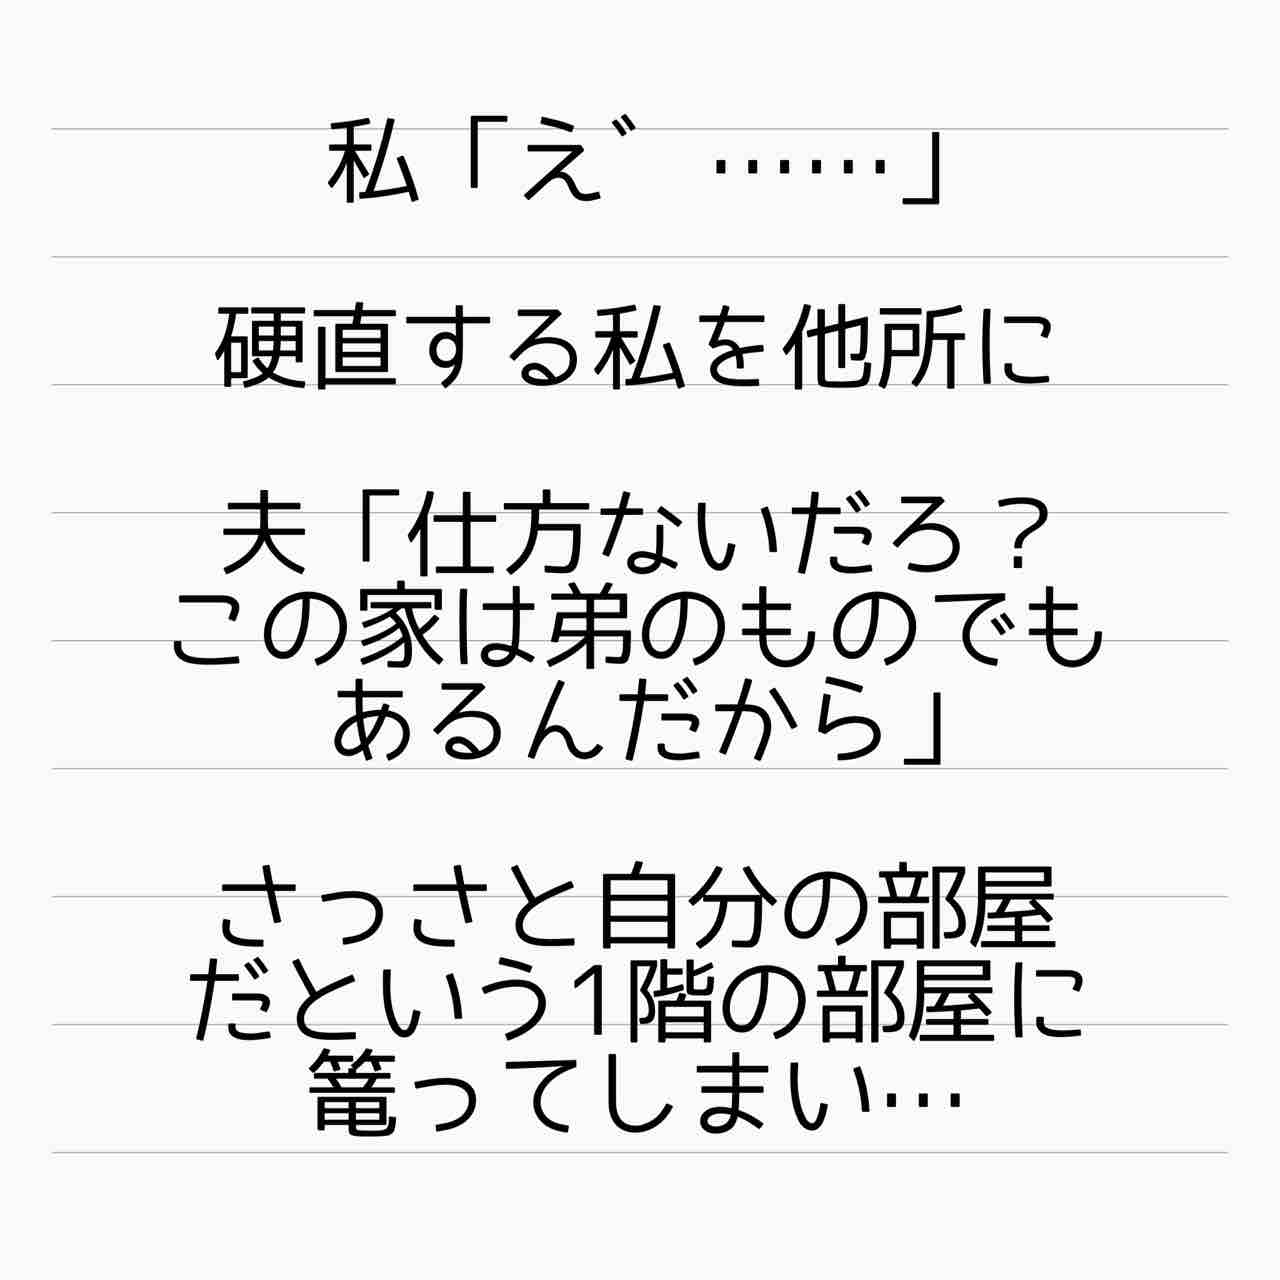 私「え゛……」
硬直する私を他所に
夫「仕方ないだろ？
この家は弟のものでも
あるんだから」
さっさと自分の部屋
だという1階の部屋に
篭ってしまい…